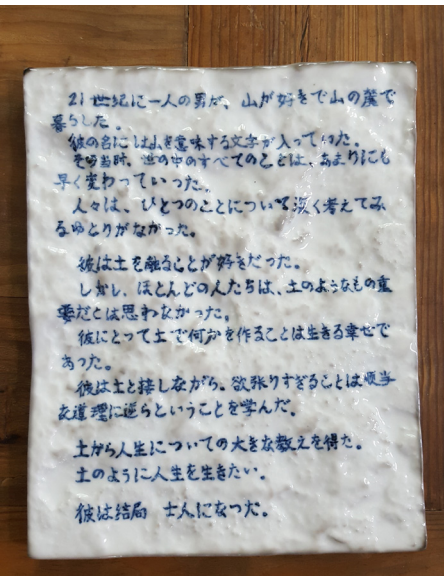 21世紀に一人の男が、山が好きで山の麓で
暮らした。
彼の名には山を意味する文字が入っていた。
その当時、世の中のすべてのことは、あまりにも
早く変わっていった。
人々は、ひとつのことについて深く考えてみ
るゆとりがなかった。
彼は土を触ることが好きだった。
しかし、ほとんどの人たちは、土のようなもの重
要だとは思わなかった。
彼にとって土で何かを作ることは生きる幸せで
あった。
彼は土と接しながら、欲張りすぎることは順当
な道理に逆らということを学んだ。
土から人生についての大きな教えを得た。
土のように人生を生きたい。
彼は结局 土人になった。